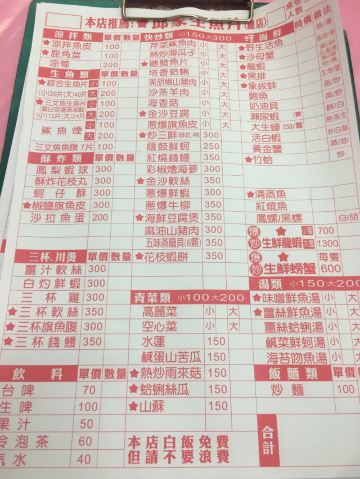 本店推薦:★邱家生魚片(總店)
桌
人
時價價法
涼拌類 單價 數量
★涼拌魚皮 100
★鹿角菜 100
涼筍 200
生魚類 單價 數量
★綜合生魚片 小 大
★三文魚生魚片 小 大
鯊魚煙 小 大
三文魚生魚片 7片 100
酥炸類 單價 數量
鳳梨蝦球 300
酥炸花枝丸 300
蚵仔酥 300
★椒鹽旗魚皮 150
沙拉魚蛋 200
三杯.川燙 單價 數量
薑汁軟絲 300
白灼鮮蝦 300
三杯雞 300
★三杯軟絲 350
★三杯旗魚腹 300
★三杯錢鰻 350
飲料 單價 數量
台啤 70
生啤 100
果汁 50
冷泡茶 60
氣水 40
快炒類 小150大300
芹菜鯊魚肉 小 大
熱炒海瓜子 小 大
★糖醋魚片 小 大
塔香蛤蜊 小 大
黑胡椒山豬肉 小 大
沙茶羊肉 小 大
海香菇 小 大
金沙豆腐 小 大
蔥爆旗魚皮 小 大
★炒三鮮 300
蔭鼓鮮蚵 300
紅燒錢鰻 300
彩椒燴海參 300
★金沙軟絲 350
★蔥爆軟絲 350
蔥爆牛柳 350
★海鮮豆腐煲 350
麻油山豬肉 350
五味蒸扇貝(6顆) 350
★花枝蝦餅 350
青菜類 小100大200
高麗菜 小 大
空心菜 小 大
水蓮 150
鹹蛋山苦瓜 150
★熱炒雨來菇 150
★蛤蜊絲瓜 150
★山蘇 150
本店白飯免費
但請不要浪費
★野生活魚
★沙母蟹
★龍蝦
★黑排
★象拔蚌
鮑魚
奶油貝
瀨尿蝦
★大生蠔 250/顆
活白蝦
黃金蟹
★竹蛤
★清蒸魚
紅燒魚
鳳螺/黑螺
700
1300
生鮮螃蟹
600
湯類 小150大200
★味噌鮮魚湯 小 大
★薑絲鮮魚湯 小 大
薑絲蛤蜊湯 小 大
鹹菜鮮蚵湯 小 大
海苔吻魚湯 小 大
飯麵類
炒麵 100
合計